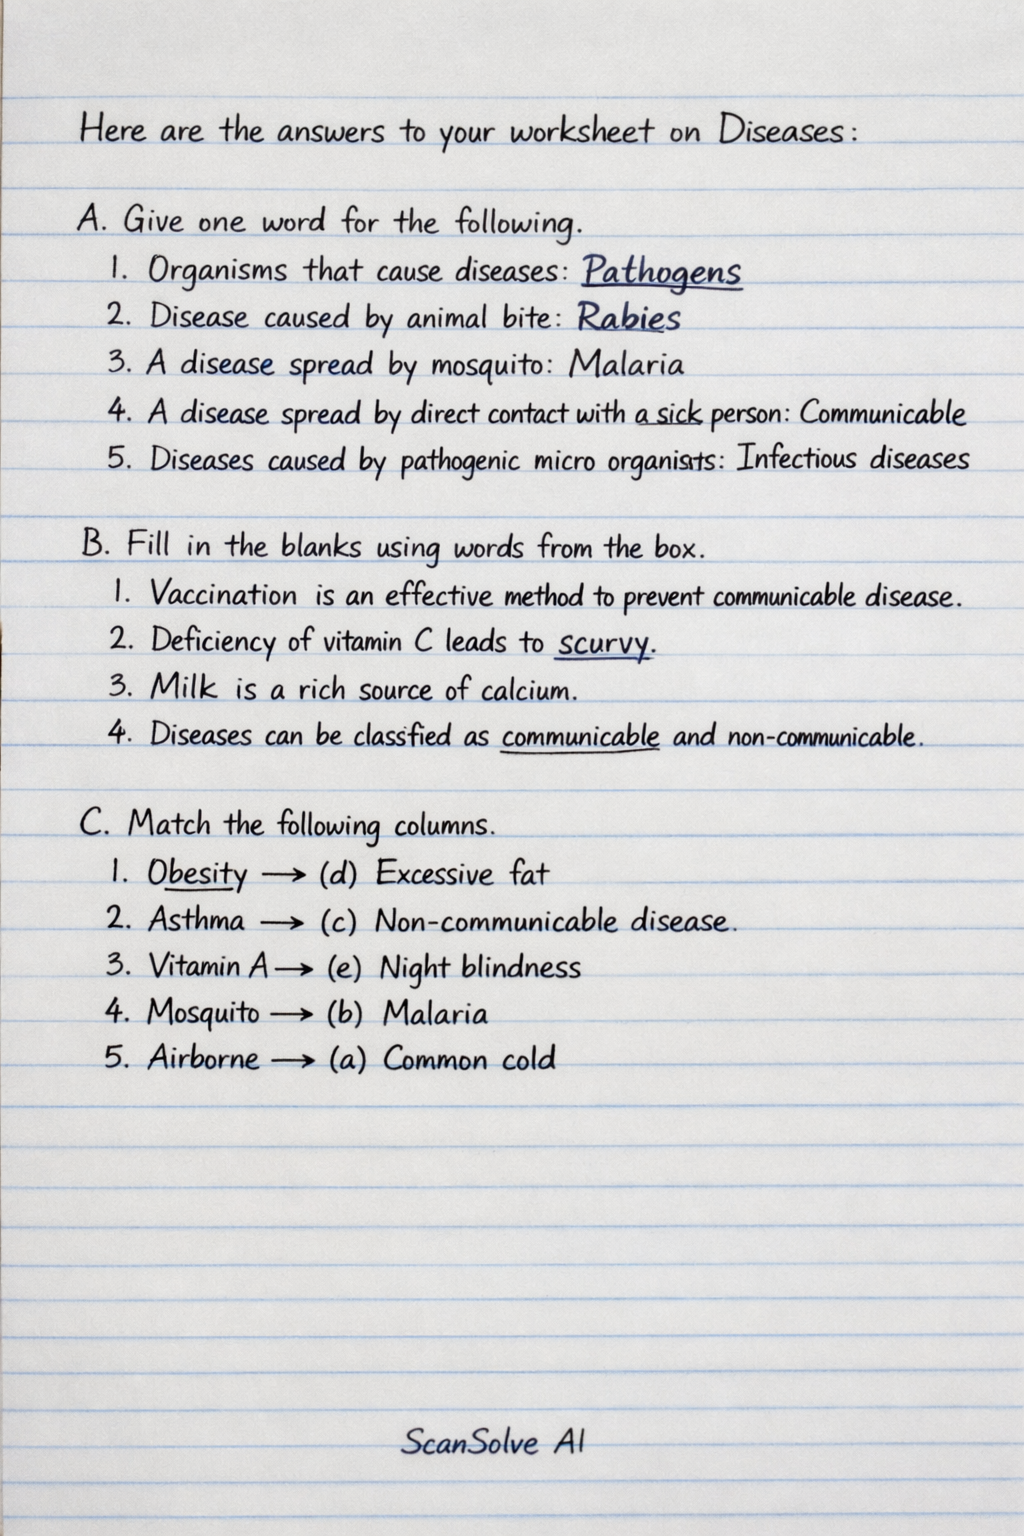 Here are the answers to your worksheet on Diseases:
A. Give one word for the following.
1. Organisms that cause diseases: Pathogens
2. Disease caused by animal bite: Rabies
3. A disease spread by mosquito: Malaria
4. A disease spread by direct contact with a sick person: Communicable
5. Diseases caused by pathogenic micro : Infectious diseases
B. Fill in the blanks using words from the box.
1. Vaccination is an effective method to prevent communicable disease.
2. Deficiency of vitamin C leads to scurvy.
3. Milk is a rich source of calcium.
4. Diseases can be classified as communicable and non-communicable.
C. Match the following columns.
1. Obesity → (d) Excessive fat
2. Asthma → (c) Non-communicable disease.
3. Vitamin A → (e) Night blindness
4. Mosquito → (b) Malaria
5. Airborne → (a) Common cold
ScanSolve AI